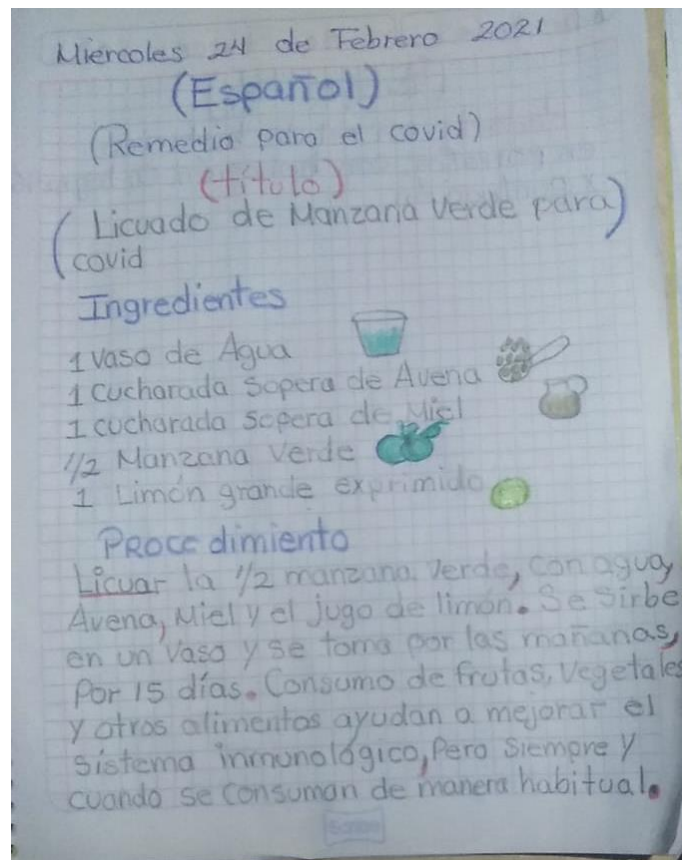 Miercoles 24 de Febrero 2021
(Español)
(Remedio para el covid)
(título)
(Licuado de Manzana Verde para)
covid
Ingredientes
1 Vaso de Agua
1 Cucharada Sopera de Avena
1 cucharada Sopera de Miel
1/2 Manzana Verde
1 Limón grande exprimido
Procedimiento
Licuar la 1/2 manzana Verde, con agua,
Avena, Miel y el jugo de limón. Se Sirbe
en un Vaso y se toma por las mañanas,
Por 15 días. Consumo de frutas, Vegetales
y otros alimentos ayudan a mejorar el
Sistema inmunológico, Pero Siempre y
cuando se consuman de manera habitual.
Scribe